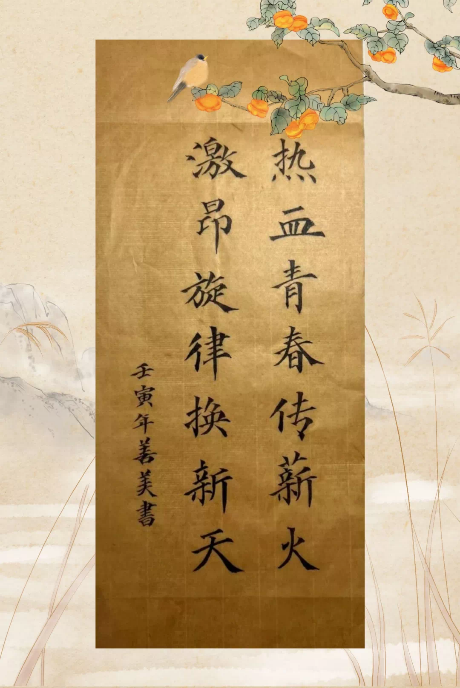 热血青春传薪火
激昂旋律换新天
壬寅年善美書